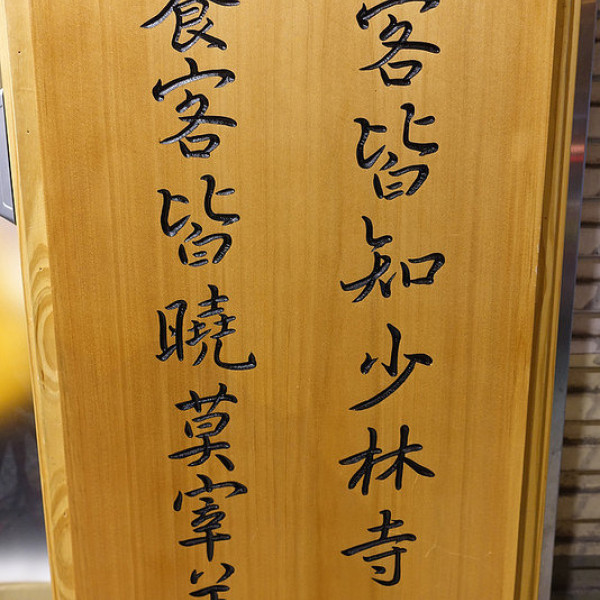 客皆知少林寺
食客皆曉莫宰羊